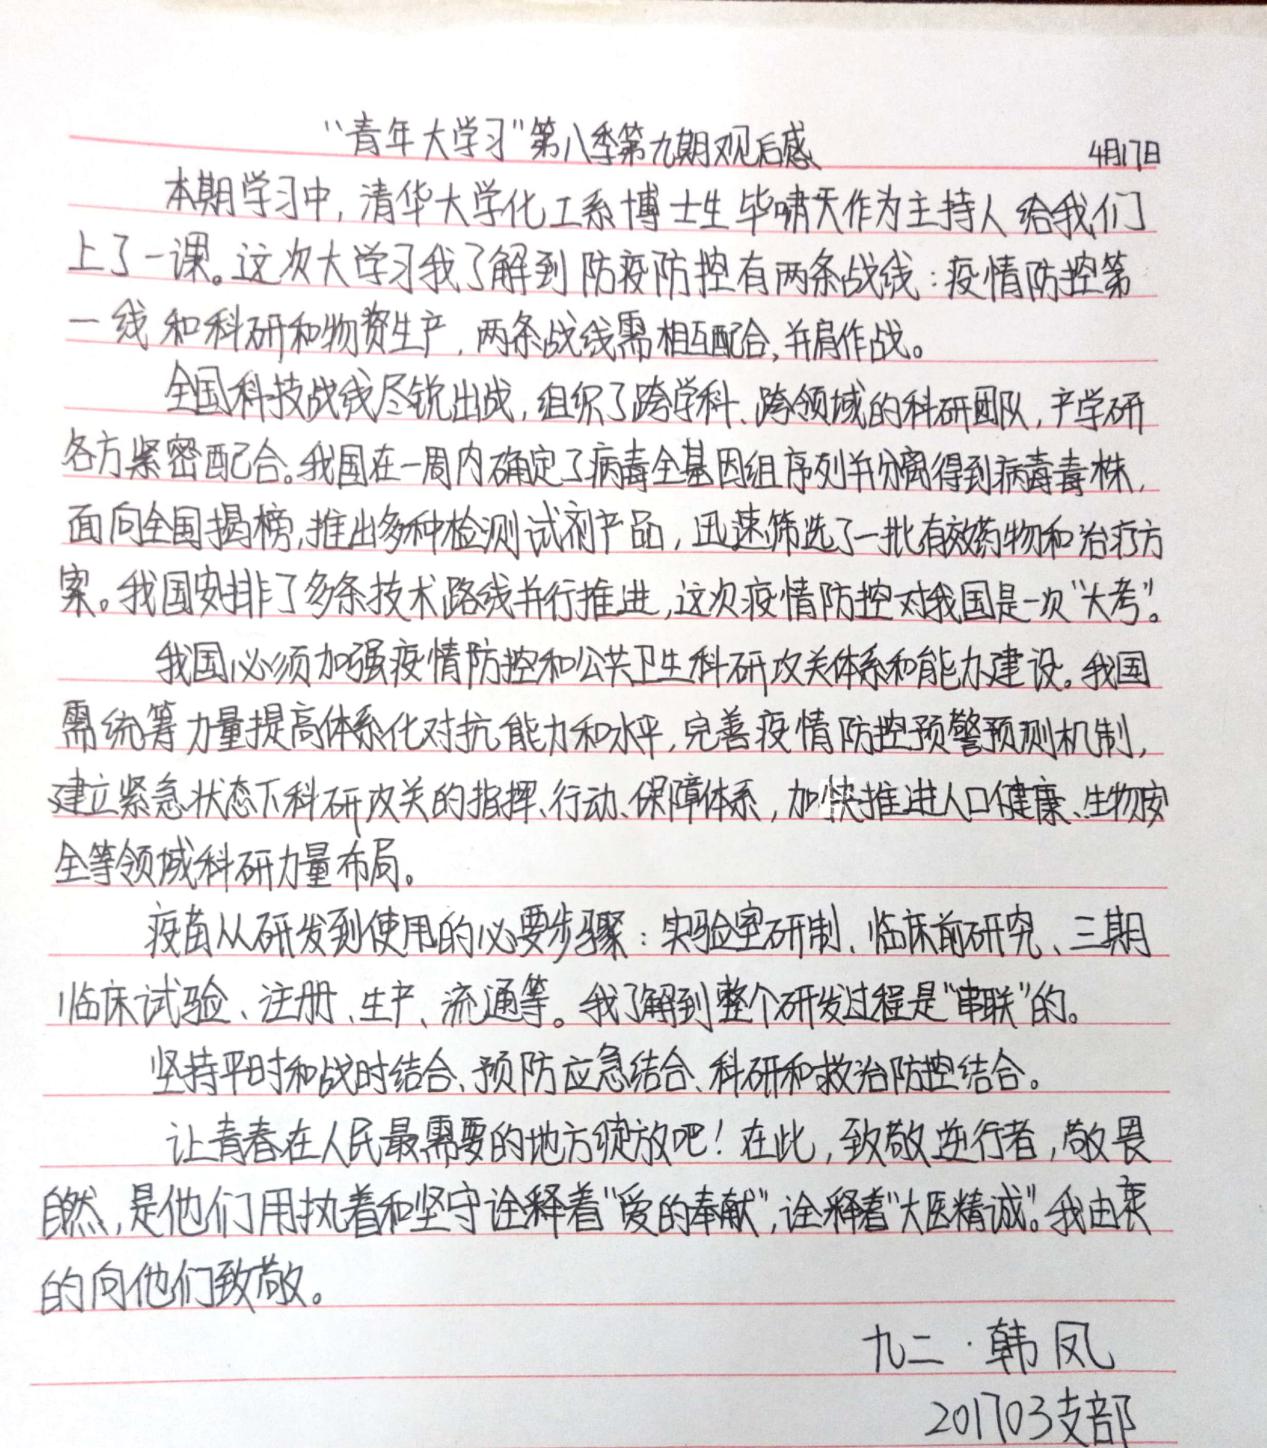 “青年大学习”第八季第九期观后感 4月17日
本期学习中,清华大学化工系博士生毕啸天作为主持人给我们
上了一课。这次大学习我了解到防疫防控有两条战线:疫情防控第
一线和科研和物资生产,两条战线需相互配合,并肩作战。
全国科技战线尽锐出战,组织了跨学科、跨领域的科研团队,产学研
各方紧密配合。我国在一周内确定了病毒全基因组序列并分离得到病毒毒株,
面向全国揭榜,推出多种检测试剂产品,迅速筛选了一批有效药物和治疗方
案。我国安排了多条技术路线并行推进,这次疫情防控对我国是一次“大考”。
我国必须加强疫情防控和公共卫生科研攻关体系和能力建设。我国
需统筹力量提高体系化对抗能力和水平,完善疫情防控预警预测机制,
建立紧急状态下科研攻关的指挥、行动、保障体系,加快推进人口健康、生物安
全等领域科研力量布局。
疫苗从研发到使用的必要步骤:实验室研制、临床前研究、三期
临床试验、注册、生产、流通等。我了解到整个研发过程是“串联”的。
坚持平时和战时结合、预防应急结合、科研和救治防控结合。
让青春在人民最需要的地方绽放吧!在此,致敬逆行者,敬畏
自然,是他们用执着和坚守诠释着“爱的奉献”,诠释着“大医精诚”。我由衷
的向他们致敬。
九二·韩凤
201703支部